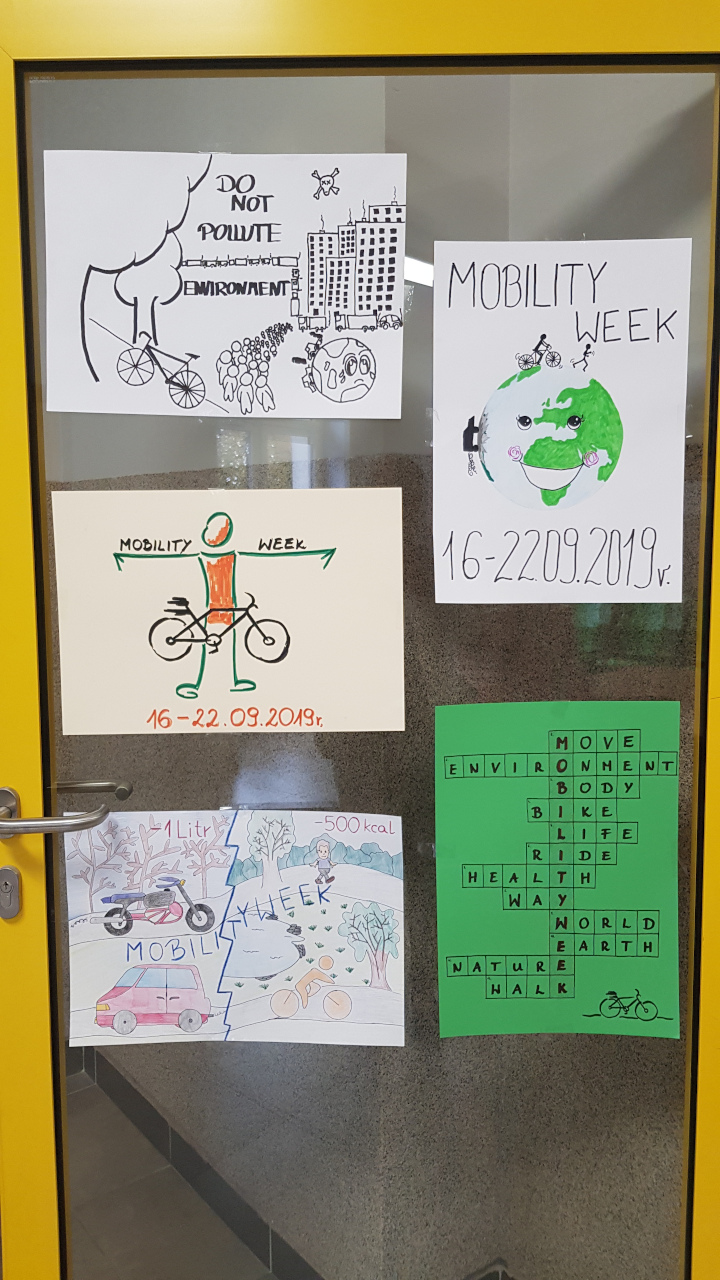 DO
NOT
POLLUTE
ENVIRONMENT
MOBILITY
WEEK
16-22.09.2019r.
MOBILITY WEEK
16-22.09.2019r.
-1 Litr -500 kcal
MOBILITY WEEK
MOVE
ENVIRONMENT
BODY
BIKE
LIFE
RIDE
HEALTH
WAY
WORLD
EARTH
NATURE
WALK